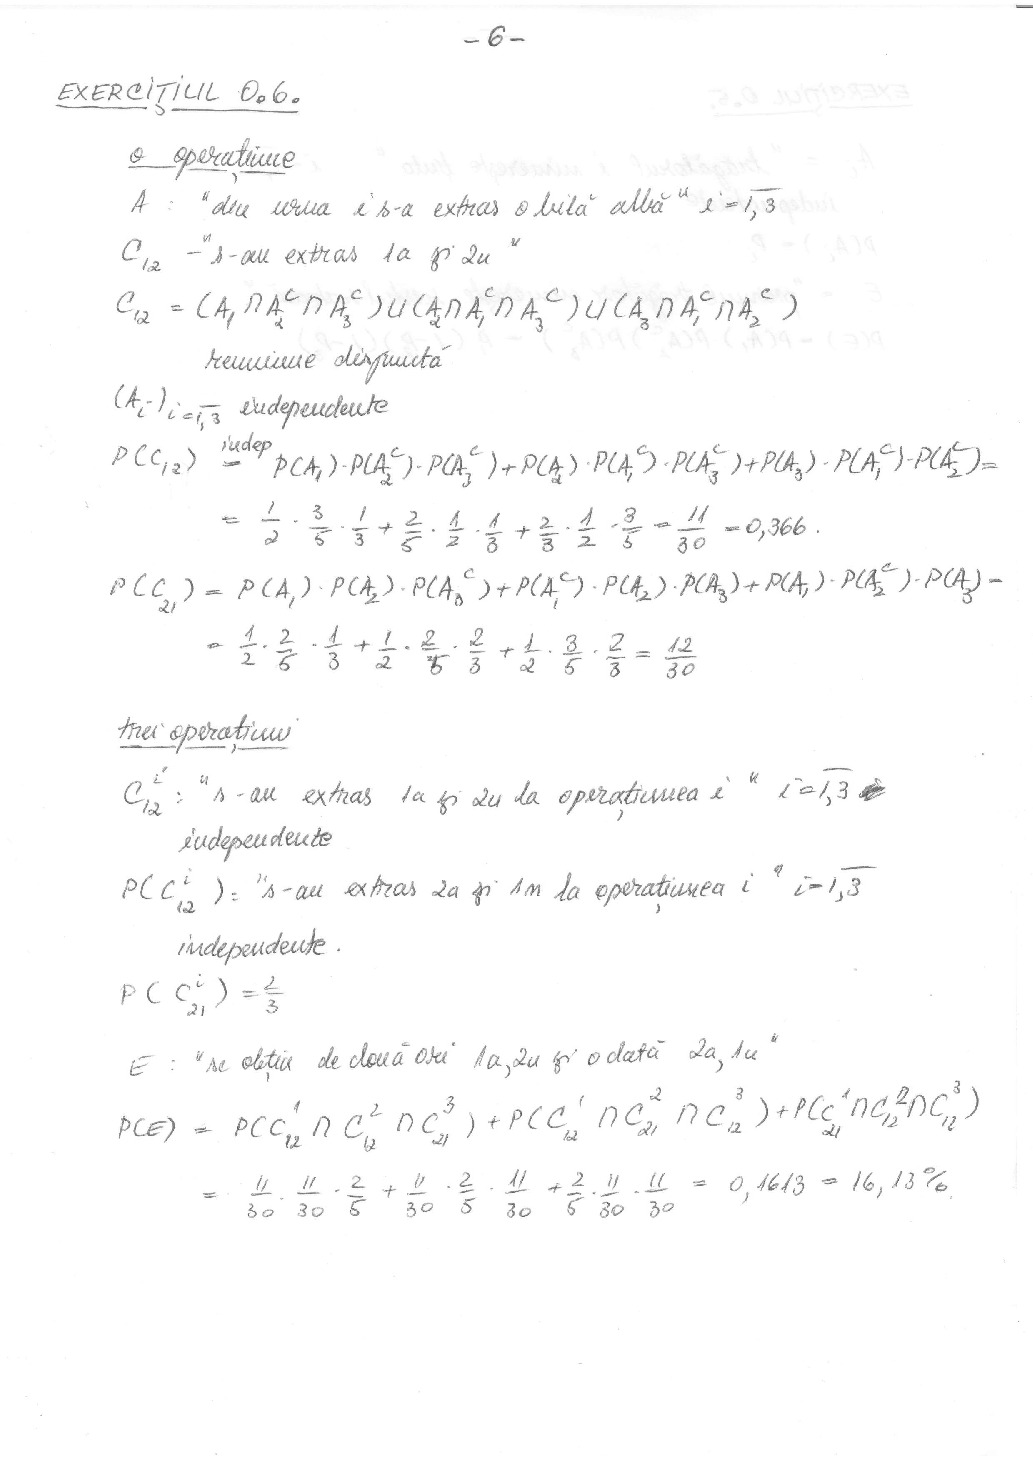 -6-
EXERCIȚIUL 0.6.
o operațiune
A : "din urna i s-a extras o bilă albă" i=1,3
C12 - "s-au extras 1a și 2n"
C12 = (A1∩A2^C∩A3^C)∪(A2∩A1^C∩A3^C)∪(A3∩A1^C∩A2^C)
reuniune disjunctă
(Ai)i=1,3 independente
P(C12) indep= P(A1)·P(A2^C)·P(A3^C)+P(A2)·P(A1^C)·P(A3^C)+P(A3)·P(A1^C)·P(A2^C)=
= 1/2 · 3/5 · 1/3 + 2/5 · 1/2 · 1/3 + 2/3 · 1/2 · 3/5 = 11/30 = 0,366.
P(C21) = P(A1)·P(A2)·P(A3^C)+P(A1^C)·P(A2)·P(A3)+P(A1)·P(A2^C)·P(A3)=
= 1/2 · 2/5 · 1/3 + 1/2 · 2/5 · 2/3 + 1/2 · 3/5 · 2/3 = 12/30
trei operațiuni
C12^i : "s-au extras 1a și 2n la operațiunea i" i=1,3
independente
P(C12^i): "s-au extras 2a și 1n la operațiunea i" i=1,3
independente.
P(C21^i) = 2/3
E : "se obțin de două ori 1a,2n și o dată 2a,1n"
P(E) = P(C12^1 ∩ C12^2 ∩ C21^3)+P(C12^1 ∩ C21^2 ∩ C12^3)+P(C21^1∩C12^2∩C12^3)
= 11/30 · 11/30 · 2/5 + 11/30 · 2/5 · 11/30 + 2/5 · 11/30 · 11/30 = 0,1613 = 16,13%